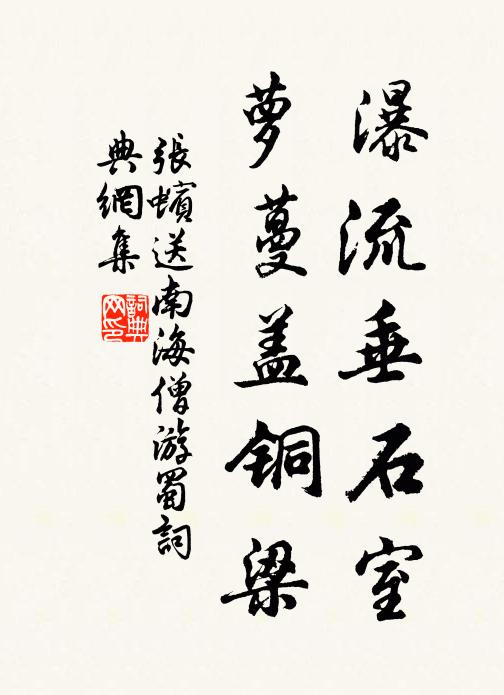 瀑流垂石室
萝蔓盖铜梁
張蠙送南海僧游蜀詞
典網集
詞典
网印